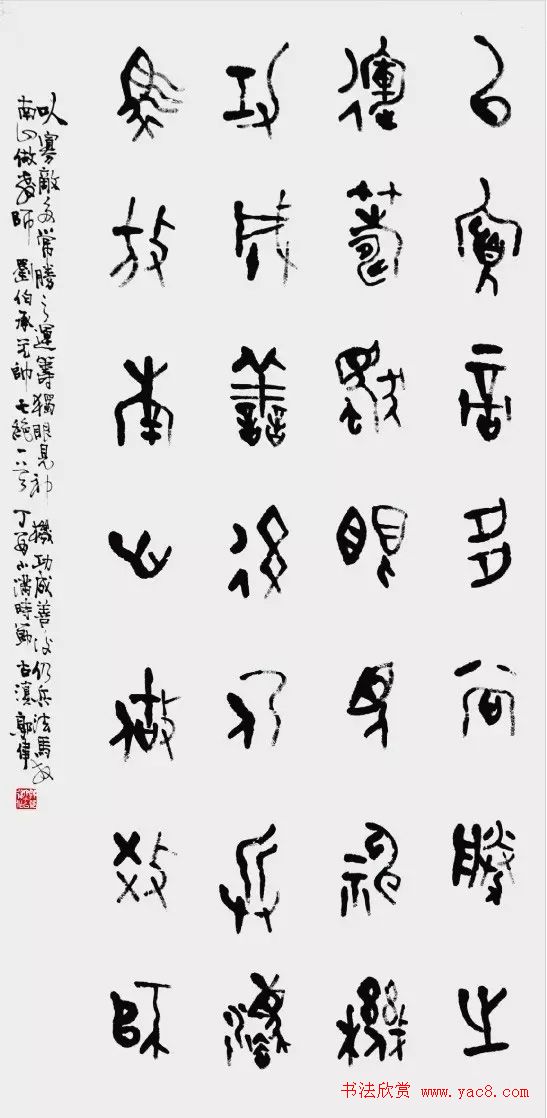 以寡敵多常勝之
運籌獨眼見神機
功成善後仍兵法
馬放南山做教師
以寡敵多常勝之運籌獨眼見神機功成善後仍兵法馬放
南山做教師 劉伯承元帥 七絕一首 丁酉小滿時節 古滇郭偉
书法欣赏 www.yac8.com